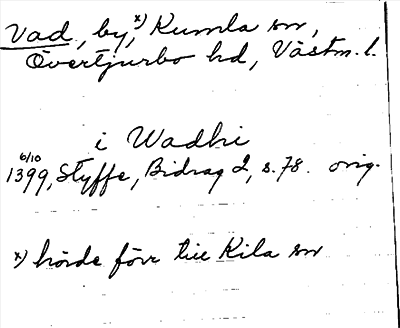 Vad, by, x) Kumla sn,
Övertjurbo hd, Västm. l.
i Wadhi
6/10
1399, Styffe, Bidrag 2, s. 78. orig.
x) hörde förr till Kila sn